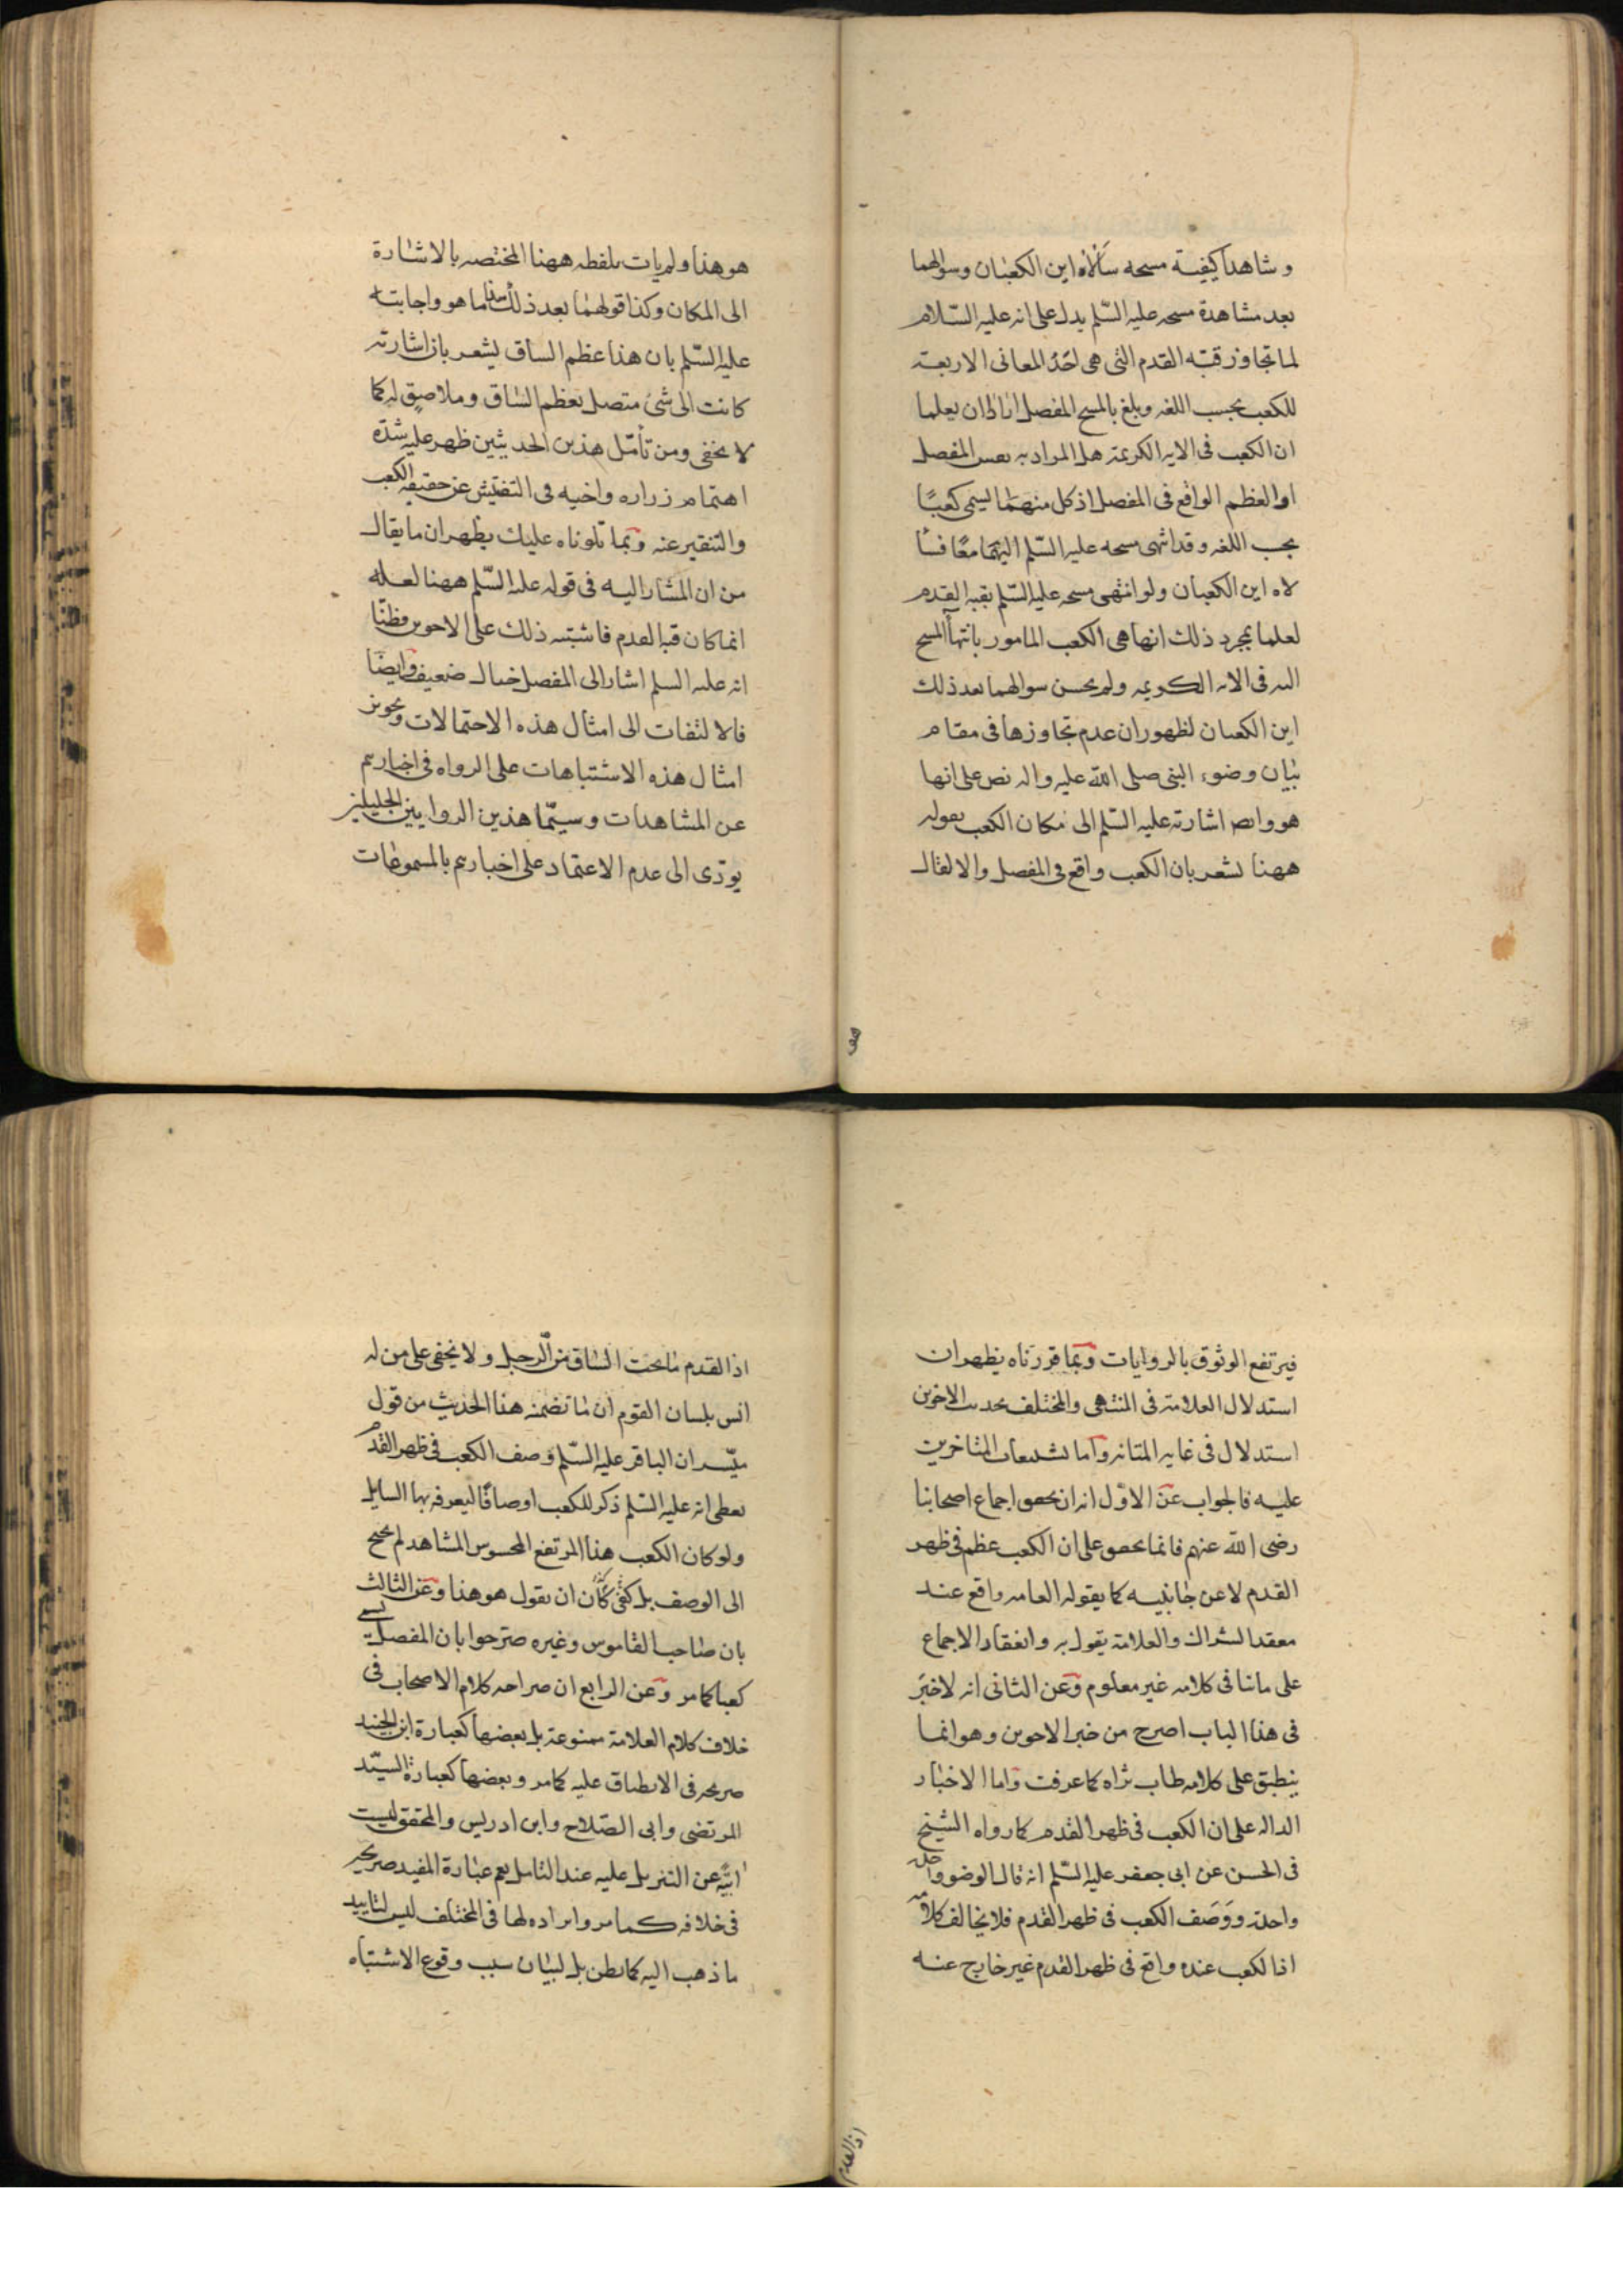 و شاهدا كيفية مسحه سألاه اين الكعبان وسوالهما
بعد مشاهدة مسحه عليه السّلم يدل على انه عليه السّلام
لما تجاوز قبّة القدم التى هى احَدُ المعانى الاربعة
للكعب بحسب اللغه وبلغ بالمسح المفصل ارادا ان يعلما
ان الكعب فى الايه الكريمة هل المراد به نفس المفصل
او العظم الواقع فى المفصل اذ كل منهما يسمى كعبًا
بحسب اللغه وقد انتهى مسحه عليه السّلم اليهما معًا فسأ
لاه اين الكعبان ولو انتهى مسحه عليه السّلم بقبه القدم
لعلما بمجرد ذلك انها هى الكعب المامور بانتهأ المسح
اليه فى الايه الكريمه ولم يحسن سوالهما بعد ذلك
اين الكعبان لظهور ان عدم تجاوزها فى مقام
بيان وضوء النبى صلى الله عليه واله نص على انها
هو وايض اشارته عليه السّلم الى مكان الكعب بقوله
ههنا يشعر بان الكعب واقع فى المفصل والا لقال
هو هذا ولم يات بلفظه ههنا المختصه بالاشارة
الى المكان وكذا قولهما بعد ذلك هذا ما هو واجابته
عليه السّلم بان هذا عظم الساق يشعر بان اشارته
كانت الى شئ متصل بعظم الساق وملاصق له كما
لا يخفى ومن تأمّل هذين الحديثين ظهر عليه شدّة
اهتمام زراره واخيه فى التفتيش عن حقيقه الكعب
والتنقير عنه وبما تلوناه عليك يظهر ان ما يقال
من ان المشار اليه فى قوله عليه السّلم ههنا لعله
انما كان قبه القدم فاشتبه ذلك على الاخوين فظنّا
انه عليه السلم اشار الى المفصل خيال ضعيف وايضًا
فالالتفات الى امثال هذه الاحتمالات وتجويز
امثال هذه الاشتباهات على الرواه فى اخبارهم
عن المشاهدات وسيّما هذين الراويين الجليلين
يودّى الى عدم الاعتماد على اخبارهم بالمسموعات
فيرتفع الوثوق بالروايات وبما قررناه يظهر ان
استدلال العلامة فى المنتهى والمختلف بحديث الاخوين
استدلال فى غايه المتانه واما تشنيعات المتاخرين
عليه فالجواب عن الاوّل انه ان تحقق اجماع اصحابنا
رضى الله عنهم فانما تحقق على ان الكعب عظم فى ظهر
القدم لا عن جانبيه كما يقوله العامه واقع عند
معقد الشراك والعلامة يقول به وانعقاد الاجماع
على ما ينافى كلامه غير معلوم وعن الثانى انه لا خبَر
فى هذا الباب اصرح من خبر الاخوين وهو انما
ينطبق على كلامه طاب ثراه كما عرفت واما الاخبار
الداله على ان الكعب فى ظهر القدم كما رواه الشيخ
فى الحسن عن ابى جعفر عليه السّلم انه قال الوضوء واحدة
واحدة ووَصَف الكعب فى ظهر القدم فلا يخالف كلامه
اذ الكعب عنده واقع فى ظهر القدم غير خارج عنه
اذ القدم
اذ القدم ما تحت الساق من الرجل ولا يخفى على من له
انس بلسان القوم ان ما تضمنه هذا الحديث من قول
ميّسر ان الباقر عليه السّلم وصف الكعب فى ظهر القدم
يعطى انه عليه السّلم ذكر للكعب اوصافًا ليعرفه بها السايل
ولو كان الكعب هذا المرتفع المحسوس المشاهد لم يحتج
الى الوصف بل كان ان يقول هو هذا وعن الثالث
بان صاحب القاموس وغيره صرّحوا بان المفصل يسمى
كعبا كما مر وعن الرابع ان صراحه كلام الاصحاب فى
خلاف كلام العلامة ممنوعة بل بعضها كعبارة ابن الجنيد
صريحه فى الانطباق عليه كما مر وبعضها كعبارة السيّد
المرتضى وابى الصّلاح وابن ادريس والمحقق ليست
ابيّة عن التنزيل عليه عند التامل نعم عبارة المفيد صريحه
فى خلافه كما مر وايراده لها فى المختلف ليس لتاييد
ما ذهب اليه كما يظن بل لبيان سبب وقوع الاشتباه